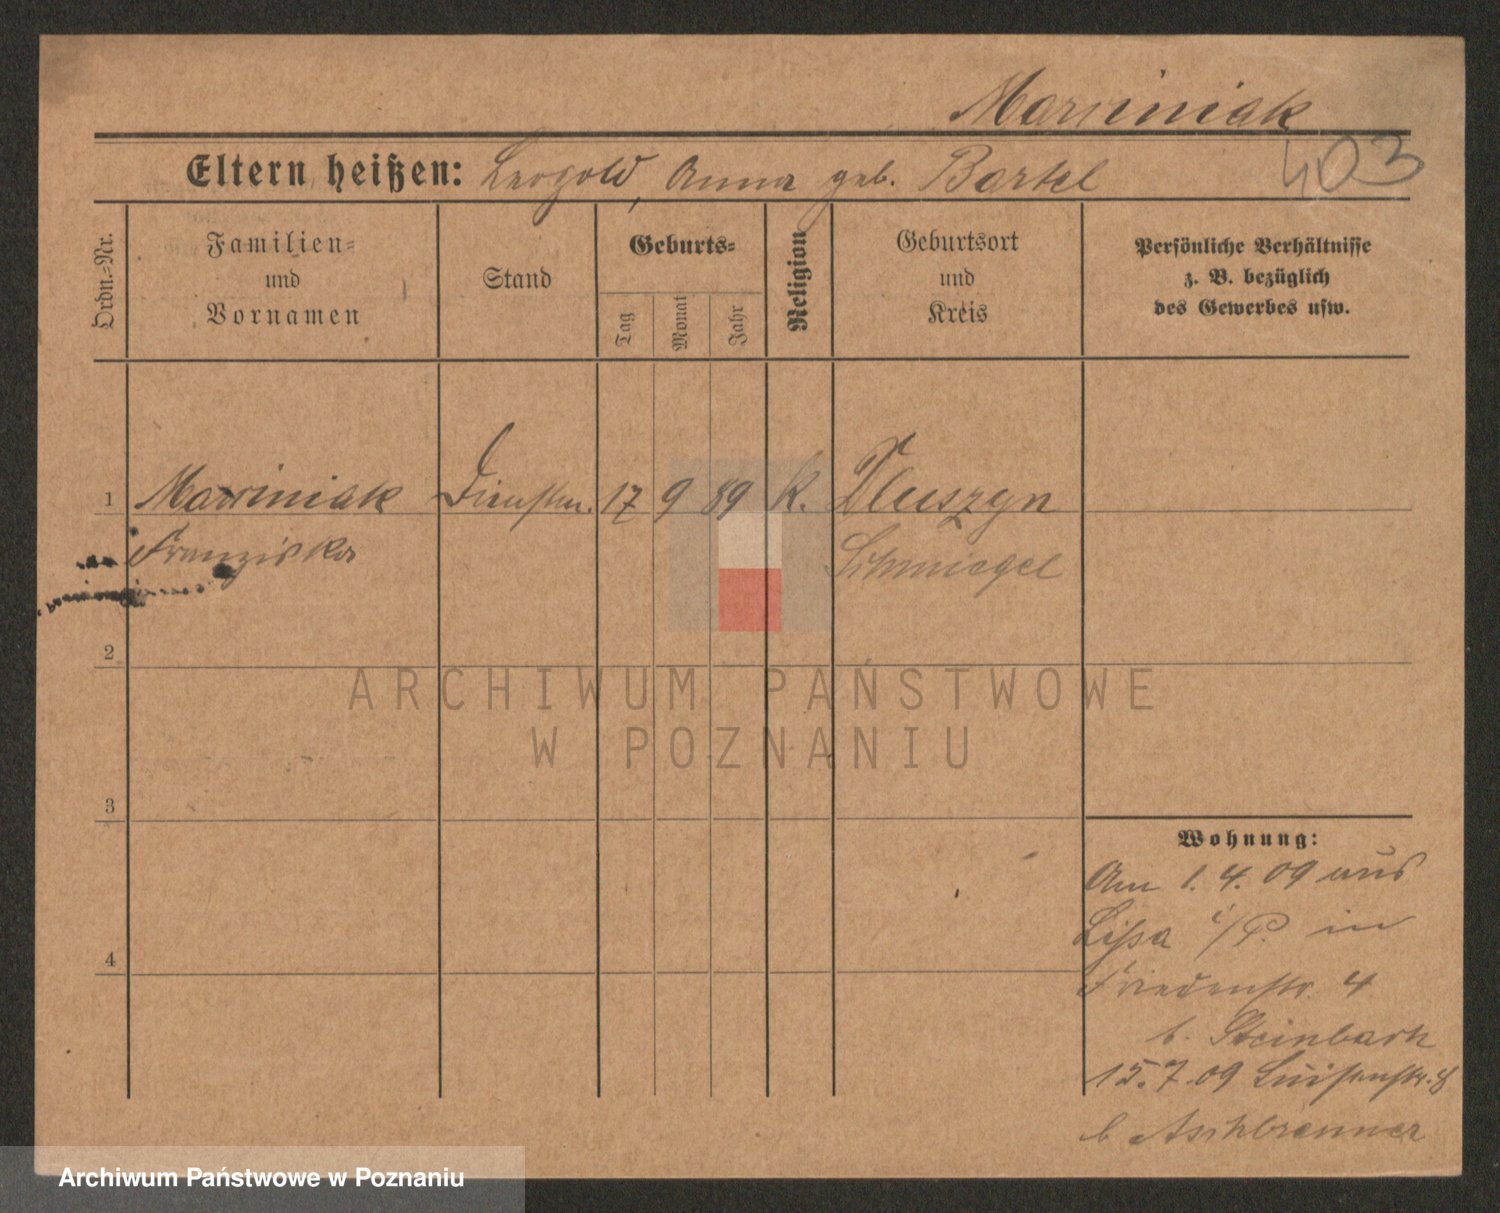 Marciniak
403
Eltern heißen: Leopold, Anna geb. Bartel
Ordn.=Nr.
Familien=
und
Vornamen
Stand
Geburts=
Tag
Monat
Jahr
Religion
Geburtsort
und
Kreis
Persönliche Verhältnisse
z. B. bezüglich
des Gewerbes usw.
1 Marciniak Dienstm. 17 9 89 K. Dluszyn
Franziska Schmiegel
2
3
4
Wohnung:
Am 1. 4. 09 aus
Lissa i/P. in
Friedenstr. 4
b. Steinbach
15. 7. 09 Luisenstr. 8
b Aschbrenner
ARCHIWUM PAŃSTWOWE
W POZNANIU
Archiwum Państwowe w Poznaniu